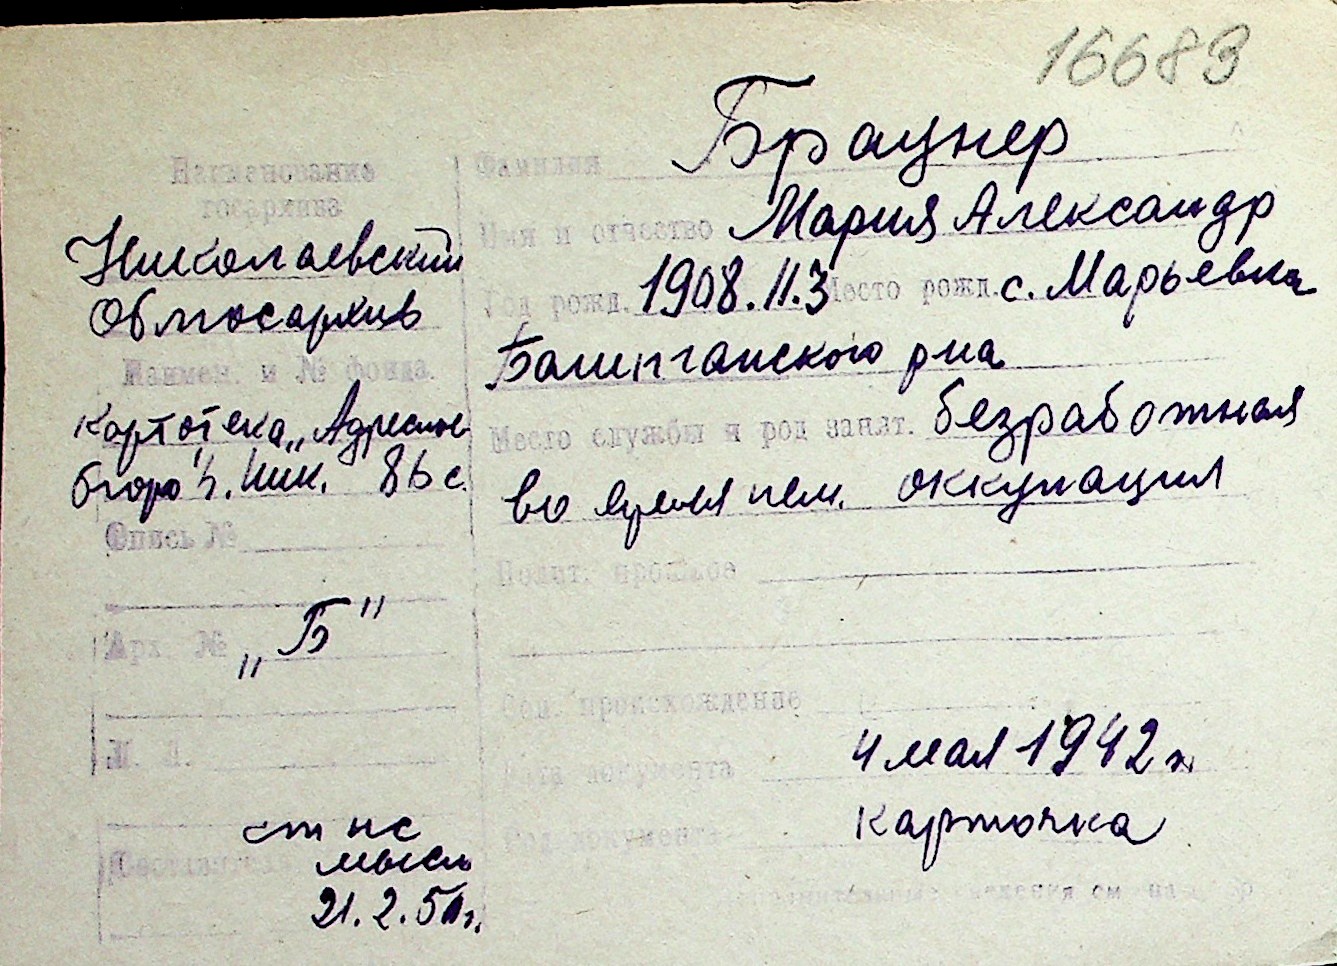 16683
Наименование
госархива
Николаевский
Облгосархив
Наимен. и № фонда.
картотека „Адресное
бюро" г. Ник.
Опись №
Арх. № „Б"
Л. Л.
ст нс
21.2.5
Фамилия Браунер
Имя и отчество Мария Александр
Год рожд. 1908.II.3 Место рожд. с. Марьевка
Баштанского р-на
Место службы и род занят. безработная
во время нем. оккупации
Полит. прошлое
Соц. происхождение
Дата документа 4 мая 1942 г.
Род документа карточка
Дополнительные сведения см. на